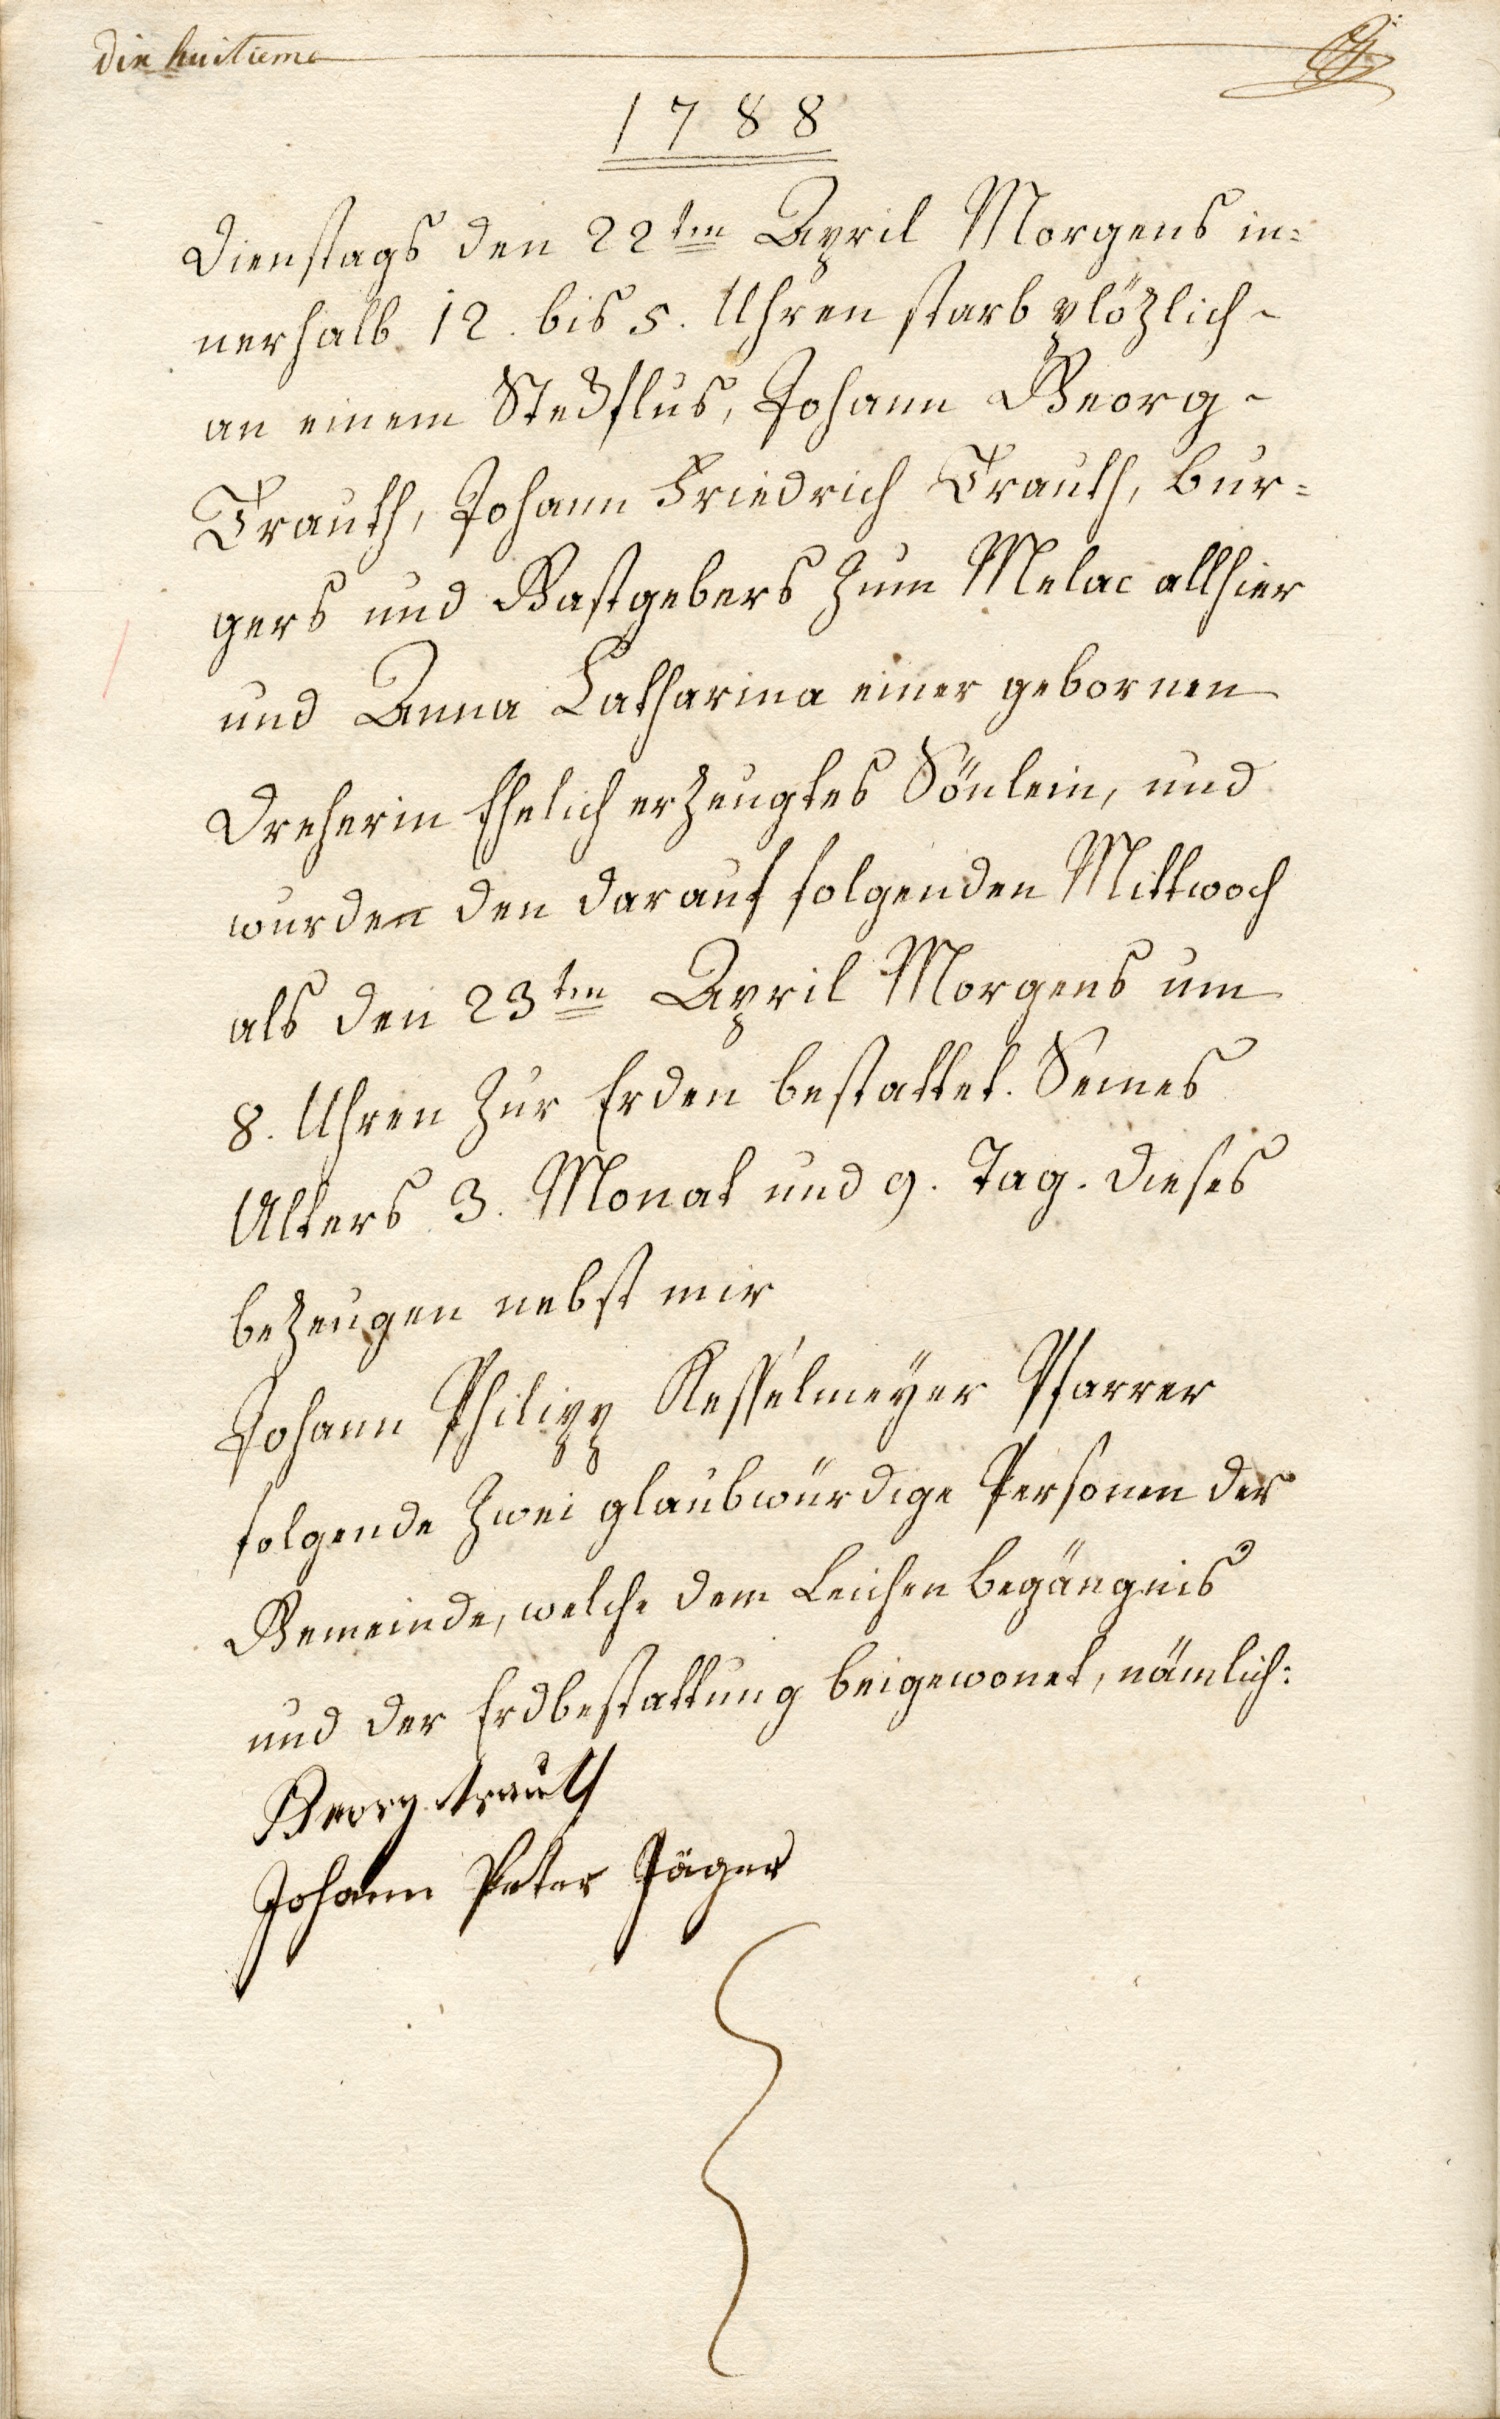 dix huitieme
1788
Dienstags den 22ten April Morgens in=
nerhalb 12. bis 5. Uhren starb plözlich
an einem Stedflus, Johann Georg
Trauth, Johann Friedrich Trauth, bur=
gers und Gastgebers zum Melac allhier
und Anna Catharina einer gebornen
Dreherin Ehelich erzeugtes Sönlein, und
wurden den darauf folgenden Mittwoch
als den 23ten April Morgens um
8. Uhren zur Erden bestattet. Seines
Alters 3. Monat und 9. Tag. Dieses
bezeugen nebst mir
Johann Philipp Kesselmeyer Pfarrer
folgende zwei glaubwürdige Personen der
Gemeinde, welche dem Leichen begängnis
und der Erdbestattung beigewonet, nämlich:
Georg trauth
Johann Peter Jäger